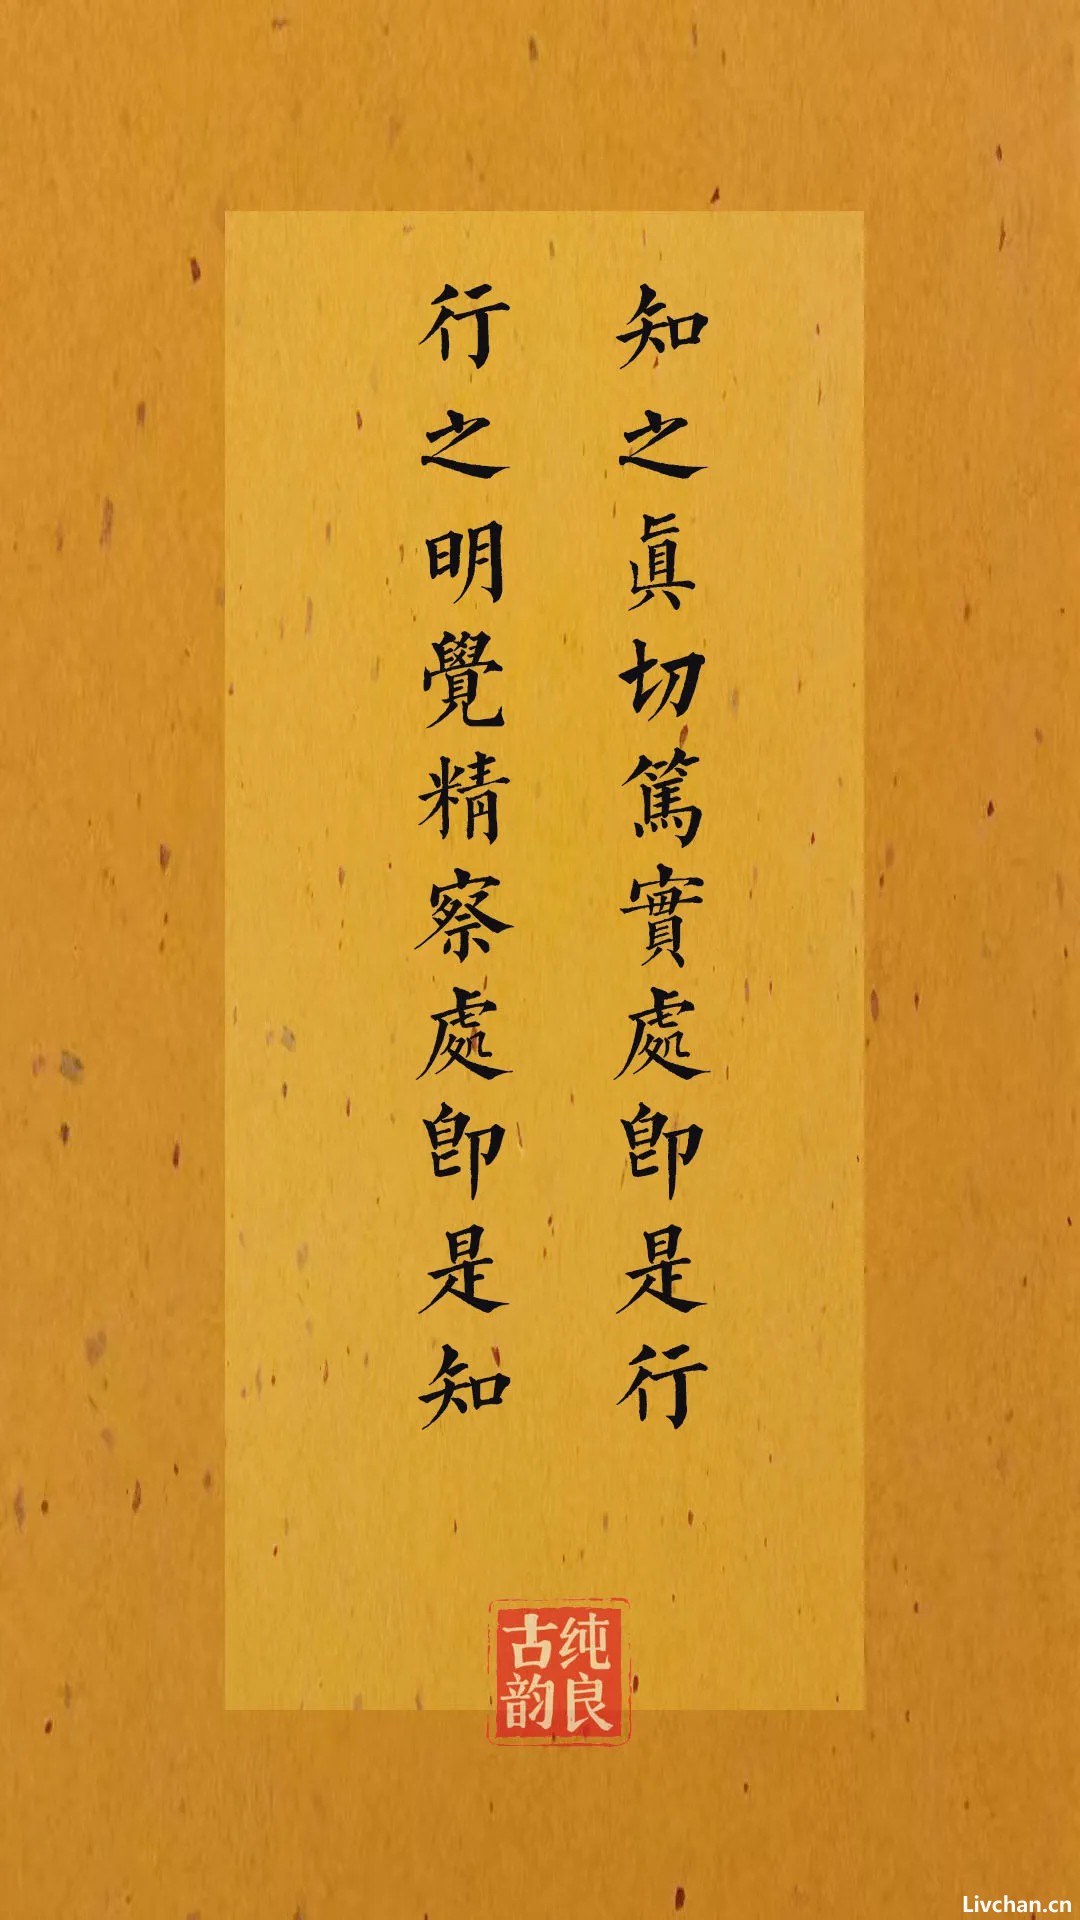 知之眞切篤實處卽是行
行之明覺精察處卽是知
纯良
古韵
Livchan.cn